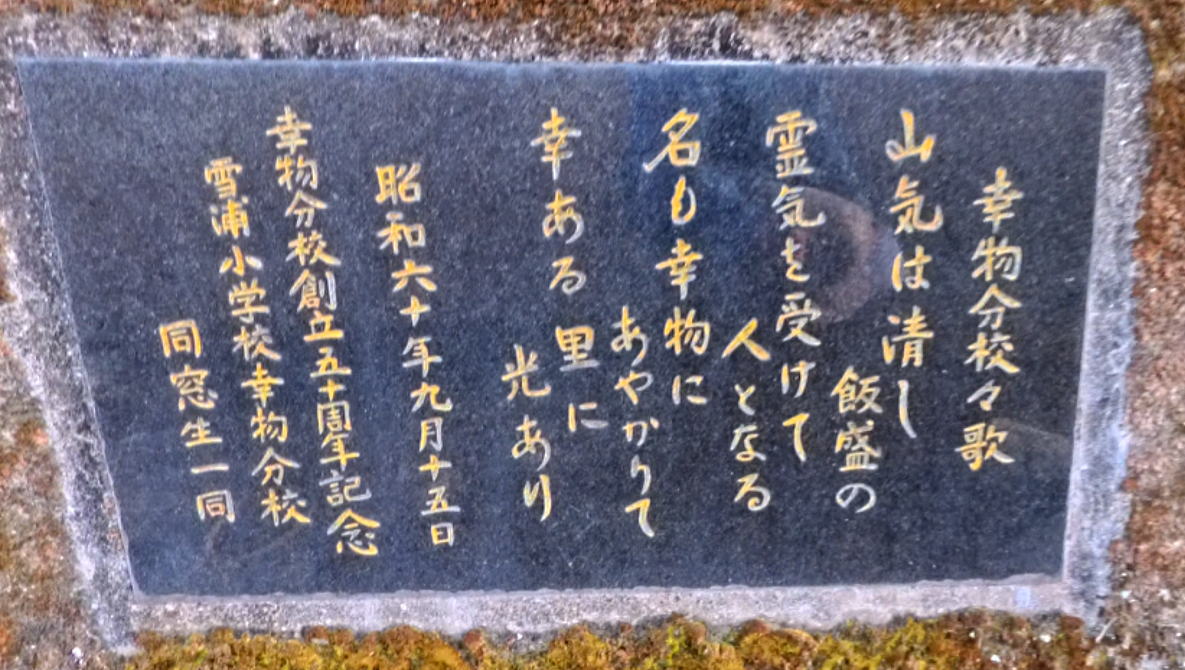 幸物分校々歌
山気は清し
飯盛の
霊気を受けて
人となる
名も幸物に
あやかりて
幸ある里に
光あり
昭和六十年九月十五日
幸物分校創立五十周年記念
雪浦小学校幸物分校
同窓生一同